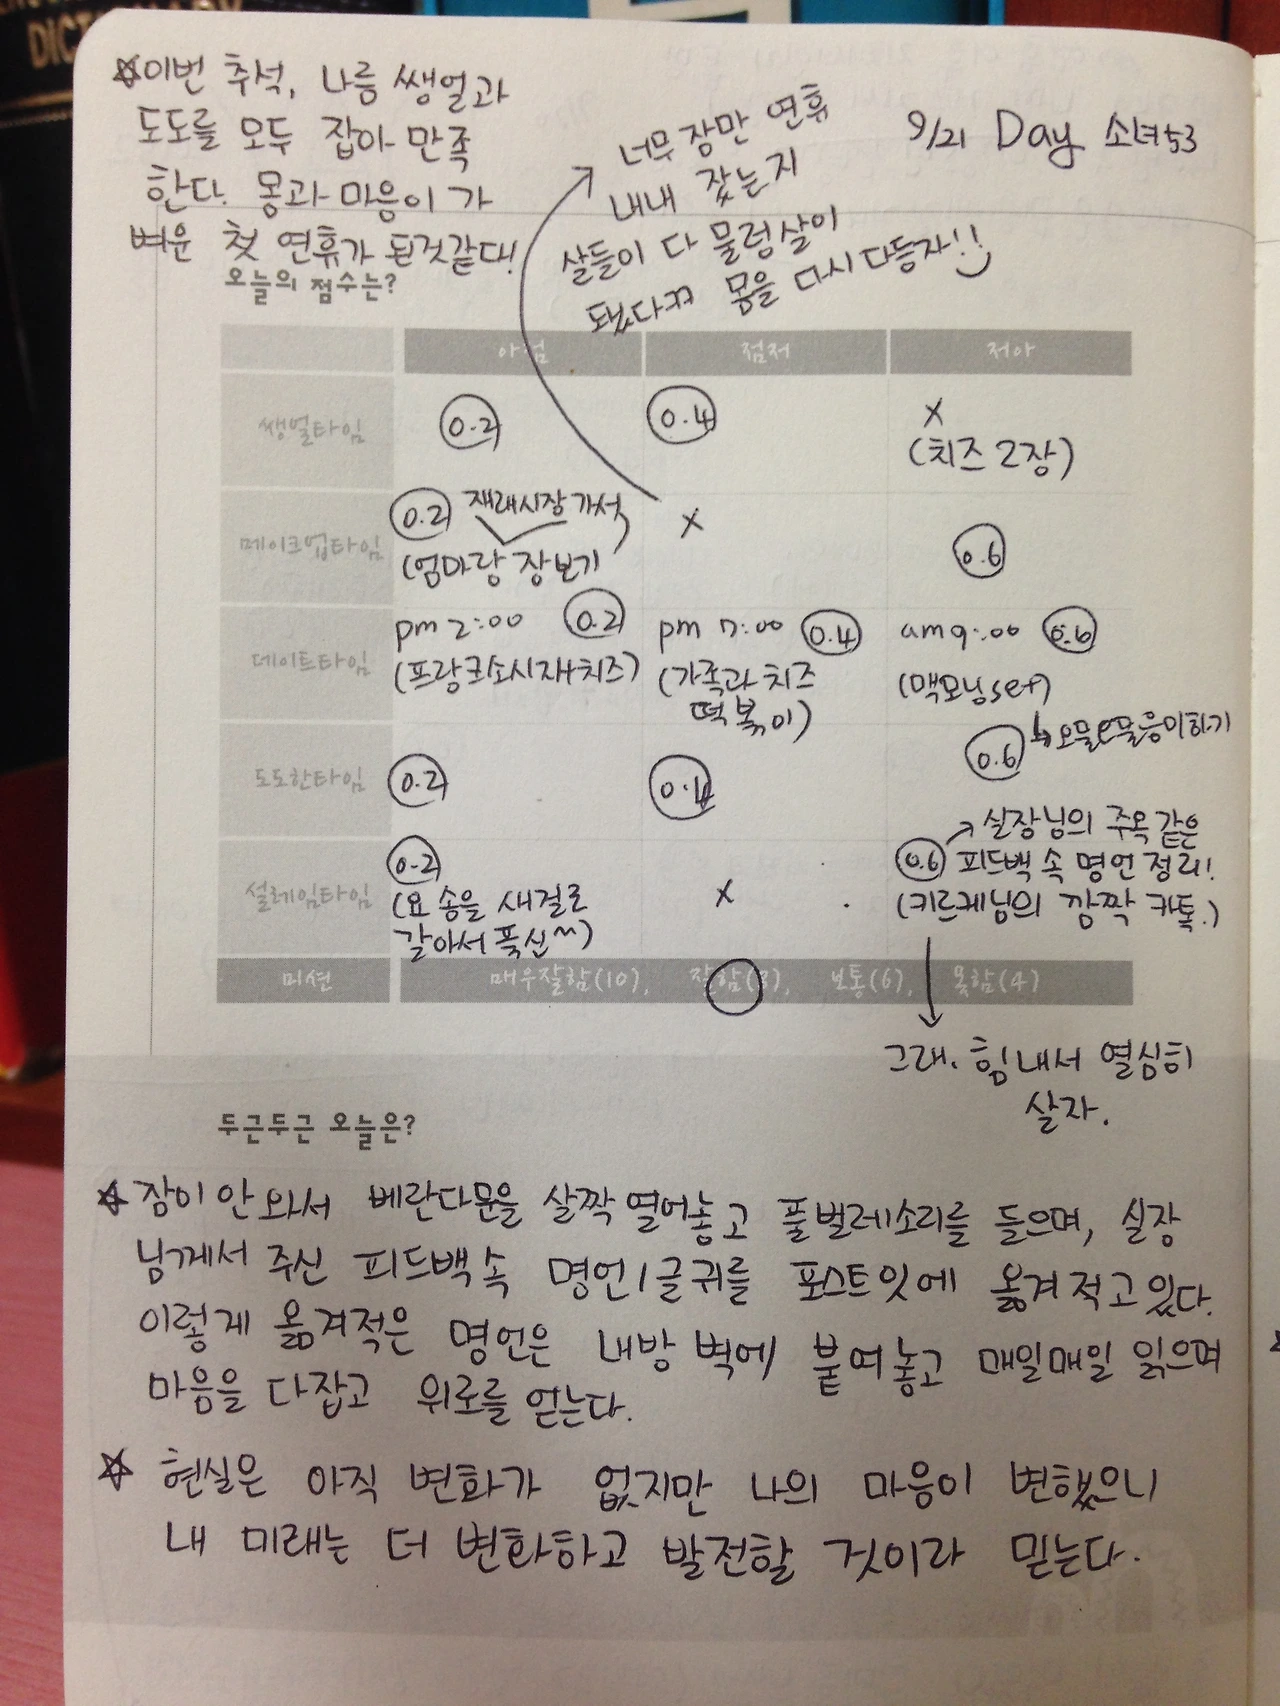 DICTIONARY
☆이번 추석, 나름 쌩얼과
도도를 모두 잡아 만족
한다. 몽과 마음이 가
벼운 첫 연휴가 된것같다!
너무 잠만 연휴
내내 잤는지
살들이 다 물렁살이
됐다ㄲㄲ 몸을 다시 다듬자!!
9/21 Day 소녀53
오늘의 점수는?
아점 점저 저아
쌩얼타임 0.2 0.4 X
(치즈 2장)
메이크업타임 0.2 재래시장 가서 X 0.6
(엄마랑 장보기
데이트타임 pm 2:00 0.2 pm 7:00 0.4 am 9:00 0.6
(프랑크소시지+치즈) (가족과 치즈 떡볶이) (맥모닝set)
↳오물오물음미하기
도도한타임 0.2 0.4 0.6
설레임타임 0.2 X 0.6
→실장님의 주옥같은
피드백 속 명언 정리!
(요 솜을 새걸로 (키르케님의 깜짝 카톡.)
갈아서 푹신~)
미션 매우잘함(10), 잘함(8), 보통(6), 못함(4)
그래. 힘내서 열심히
살자.
두근두근 오늘은?
☆잠이 안 와서 베란다문을 살짝 열어놓고 풀벌레소리를 들으며, 실장
님께서 주신 피드백 속 명언/글귀를 포스트잇에 옮겨 적고있다.
이렇게 옮겨적은 명언은 내방 벽에 붙여놓고 매일매일 읽으며
마음을 다잡고 위로를 얻는다.
☆ 현실은 아직 변화가 없지만 나의 마음이 변했으니
내 미래는 더 변화하고 발전할 것이라 믿는다.